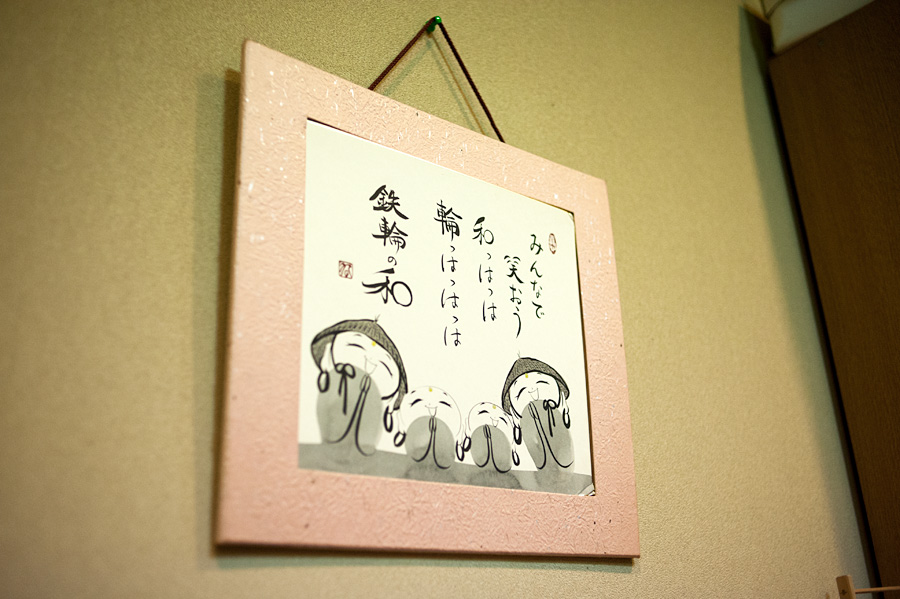 みんなで
笑おう
和っはっは
輪っはっはっは
鉄輪の和